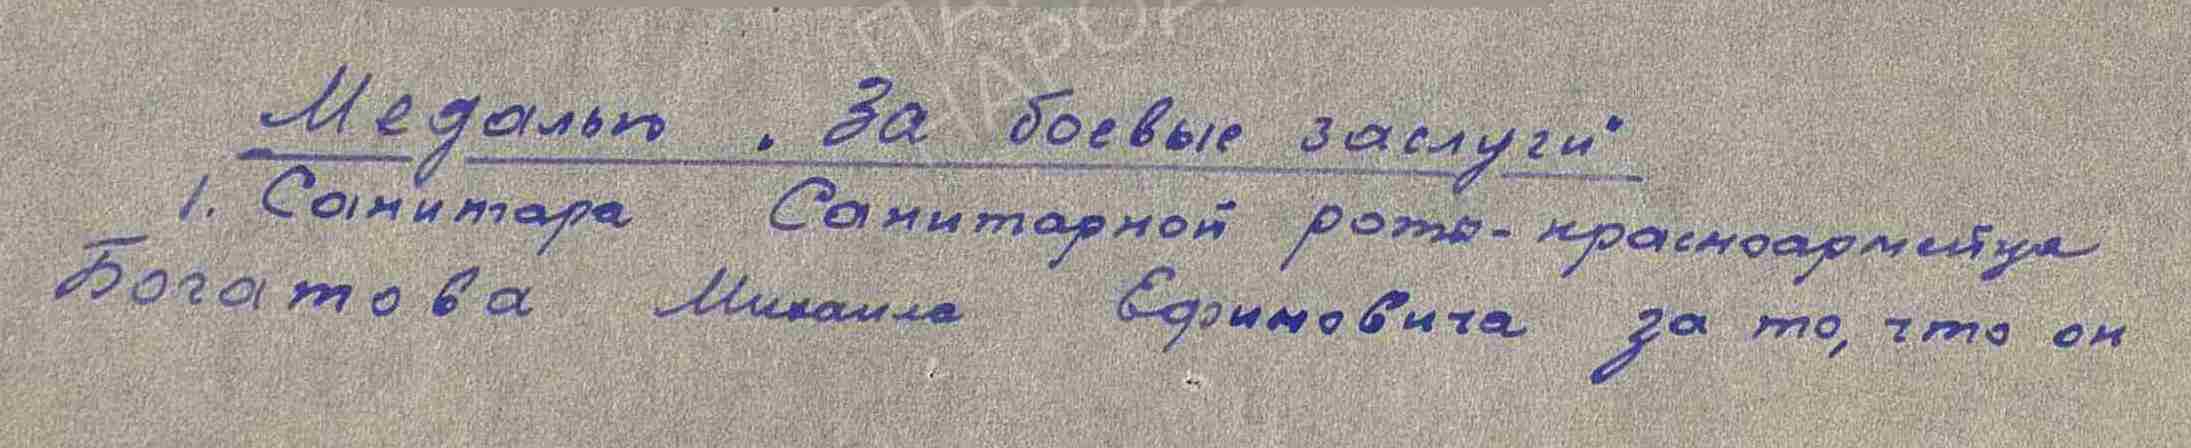 Медалью "За боевые заслуги"
1. Санитара Санитарной роты - красноармейца
Богатова Михаила Ефимовича за то, что он